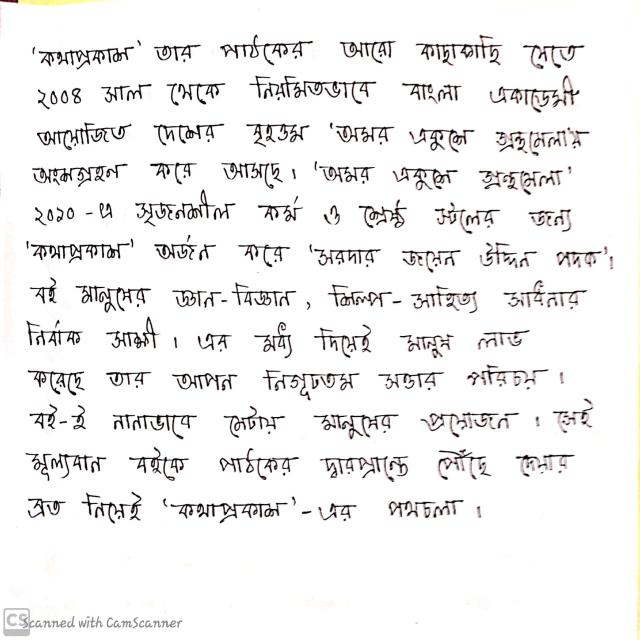 'কথাপ্রকাশ' তার পাঠকের আরো কাছাকাছি যেতে
২০০৪ সাল থেকে নিয়মিতভাবে বাংলা একাডেমী
আয়োজিত দেশের বৃহত্তম 'অমর একুশে গ্রন্থমেলা'য়
অংশগ্রহন করে আসছে। 'অমর একুশে গ্রন্থমেলা'
২০১০-এ সৃজনশীল কর্ম ও শ্রেষ্ঠ স্টলের জন্য
'কথাপ্রকাশ' অর্জন করে 'সরদার জয়েন উদ্দিন পদক'।
বই মানুষের জ্ঞান-বিজ্ঞান, শিল্প-সাহিত্য সাধনার
নির্বাক সাক্ষী। এর মধ্য দিয়েই মানুষ লাভ
করেছে তার আপন নিগূঢ়তম সত্তার পরিচয়।
বই-ই নানাভাবে মেটায় মানুষের প্রয়োজন। সেই
মূল্যবান বইকে পাঠকের দ্বারপ্রান্তে পৌঁছে দেয়ার
ব্রত নিয়েই 'কথাপ্রকাশ'-এর পথচলা।
CS Scanned with CamScanner